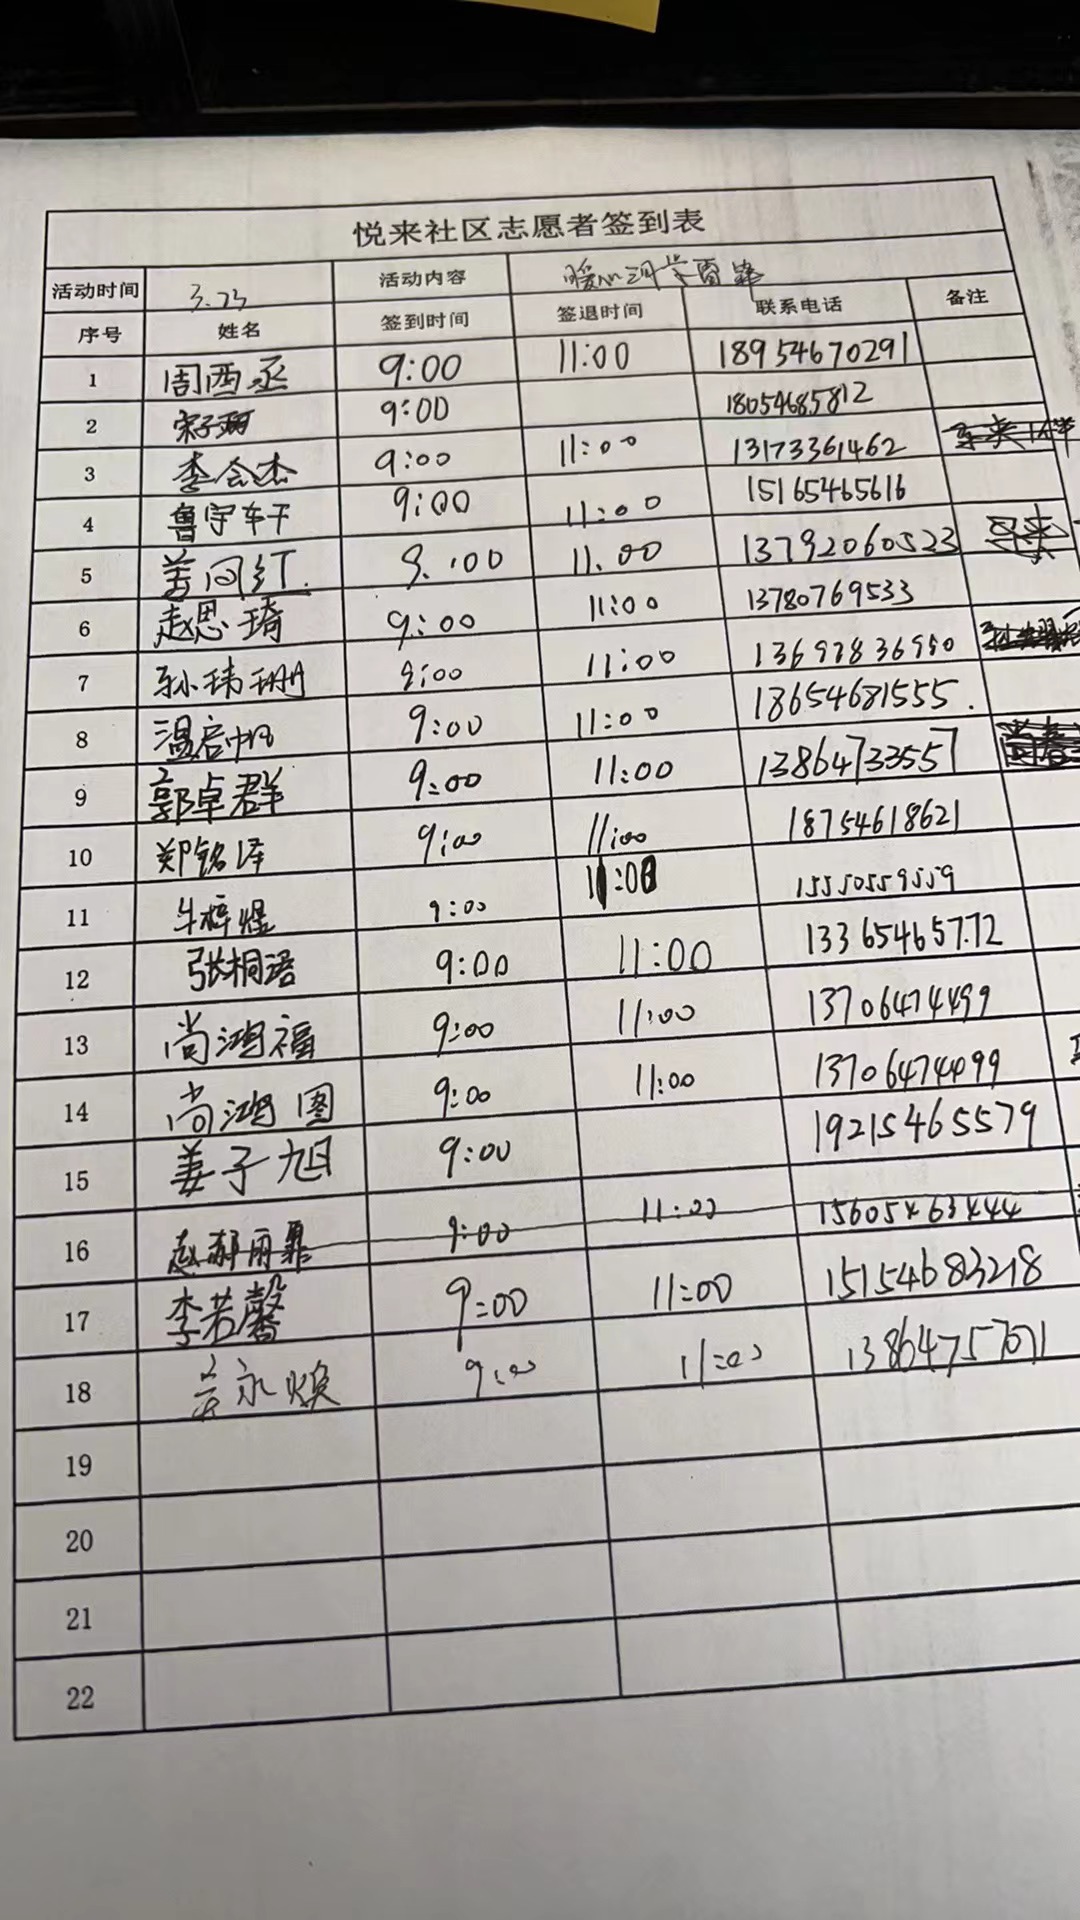 悦来社区志愿者签到表
活动时间 3.23 活动内容 暖心河 学雷锋
序号 姓名 签到时间 签退时间 联系电话 备注
1 周西丞 9:00 11:00 18954670291
2 9:00 18054685812
3 李会杰 9:00 11:00 13173361462
4 鲁宇轩 9:00 11:00 15165465616
5 姜同红. 9:00 11:00 13792060523
6 赵思琦 9:00 11:00 13780769533
7 孙玮珊 9:00 11:00 13697836950
8 温启帆 9:00 11:00 18654681555.
9 郭卓群 9:00 11:00 13864733557
10 郑铭泽 9:00 11:00 18754618621
11 牛梓煜 9:00 11:00 15550559559
12 张桐语 9:00 11:00 13365465772
13 尚鸿福 9:00 11:00 13706474499
14 尚鸿图 9:00 11:00 13706474099
15 姜子旭 9:00 19215465579
16 9:00 11:00
17 李若馨 9:00 11:00 15154683218
18 永焕 9:00 11:00 13864757071
19
20
21
22